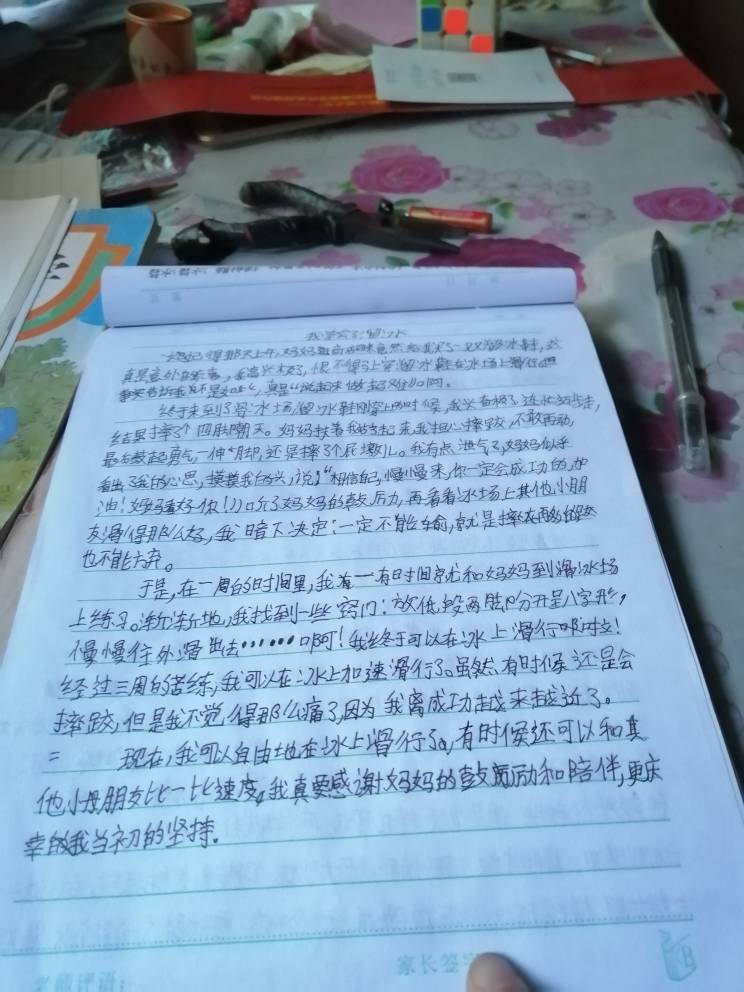 我学会了溜冰
记得那天上午,妈妈 竟然给我买了一双溜冰鞋,这
真是意外的惊喜,我高兴极了,恨不得马上穿溜冰鞋在冰场上滑行。但
事实告诉我不是如此,真是“说起来 做起来 ”啊。
终于来到了滑冰场,溜冰鞋刚穿上的时候,我兴奋极了,连忙站步走,
结果摔了个四脚朝天。妈妈扶着我站起来,我担心摔跤,不敢再动,
最后鼓起勇气,一伸脚,还是摔了个屁墩儿。我有点泄气了,妈妈似乎
看出了我的心思,摸摸我的头,说:“相信自己,慢慢来,你一定会成功的,加
油!妈妈看好你!”听了妈妈的鼓厉力,再看看冰场上其他小朋
友滑得那么好,我暗下决定:一定不能输,就是摔
也不能放弃。
于是,在一周的时间里,我有一有时间就和妈妈到滑冰场
上练习。渐渐地,我找到一些窍门:放低 两脚分开呈八字形,
慢慢往外滑出去……啊!我终于可以在冰上滑行
经过三周的苦练,我可以在冰上加速滑行了。虽然有时候还是会
摔跤,但是我不觉得那么痛了,因为我离成功越来越近了。
= 现在,我可以自由地在冰上滑行了,有时候还可以和其
他小朋友比一比速度,我真要感谢妈妈的鼓励和陪伴,更庆
幸的我当初的坚持.
老师评语:
家长签字